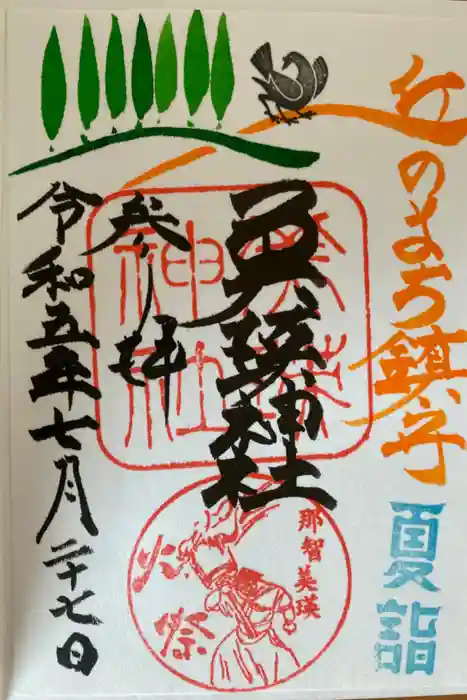 丘のまち鎮守
夏詣
美瑛神社
奉拝
令和五年七月二十七日
美瑛
神社
那智美瑛
火祭